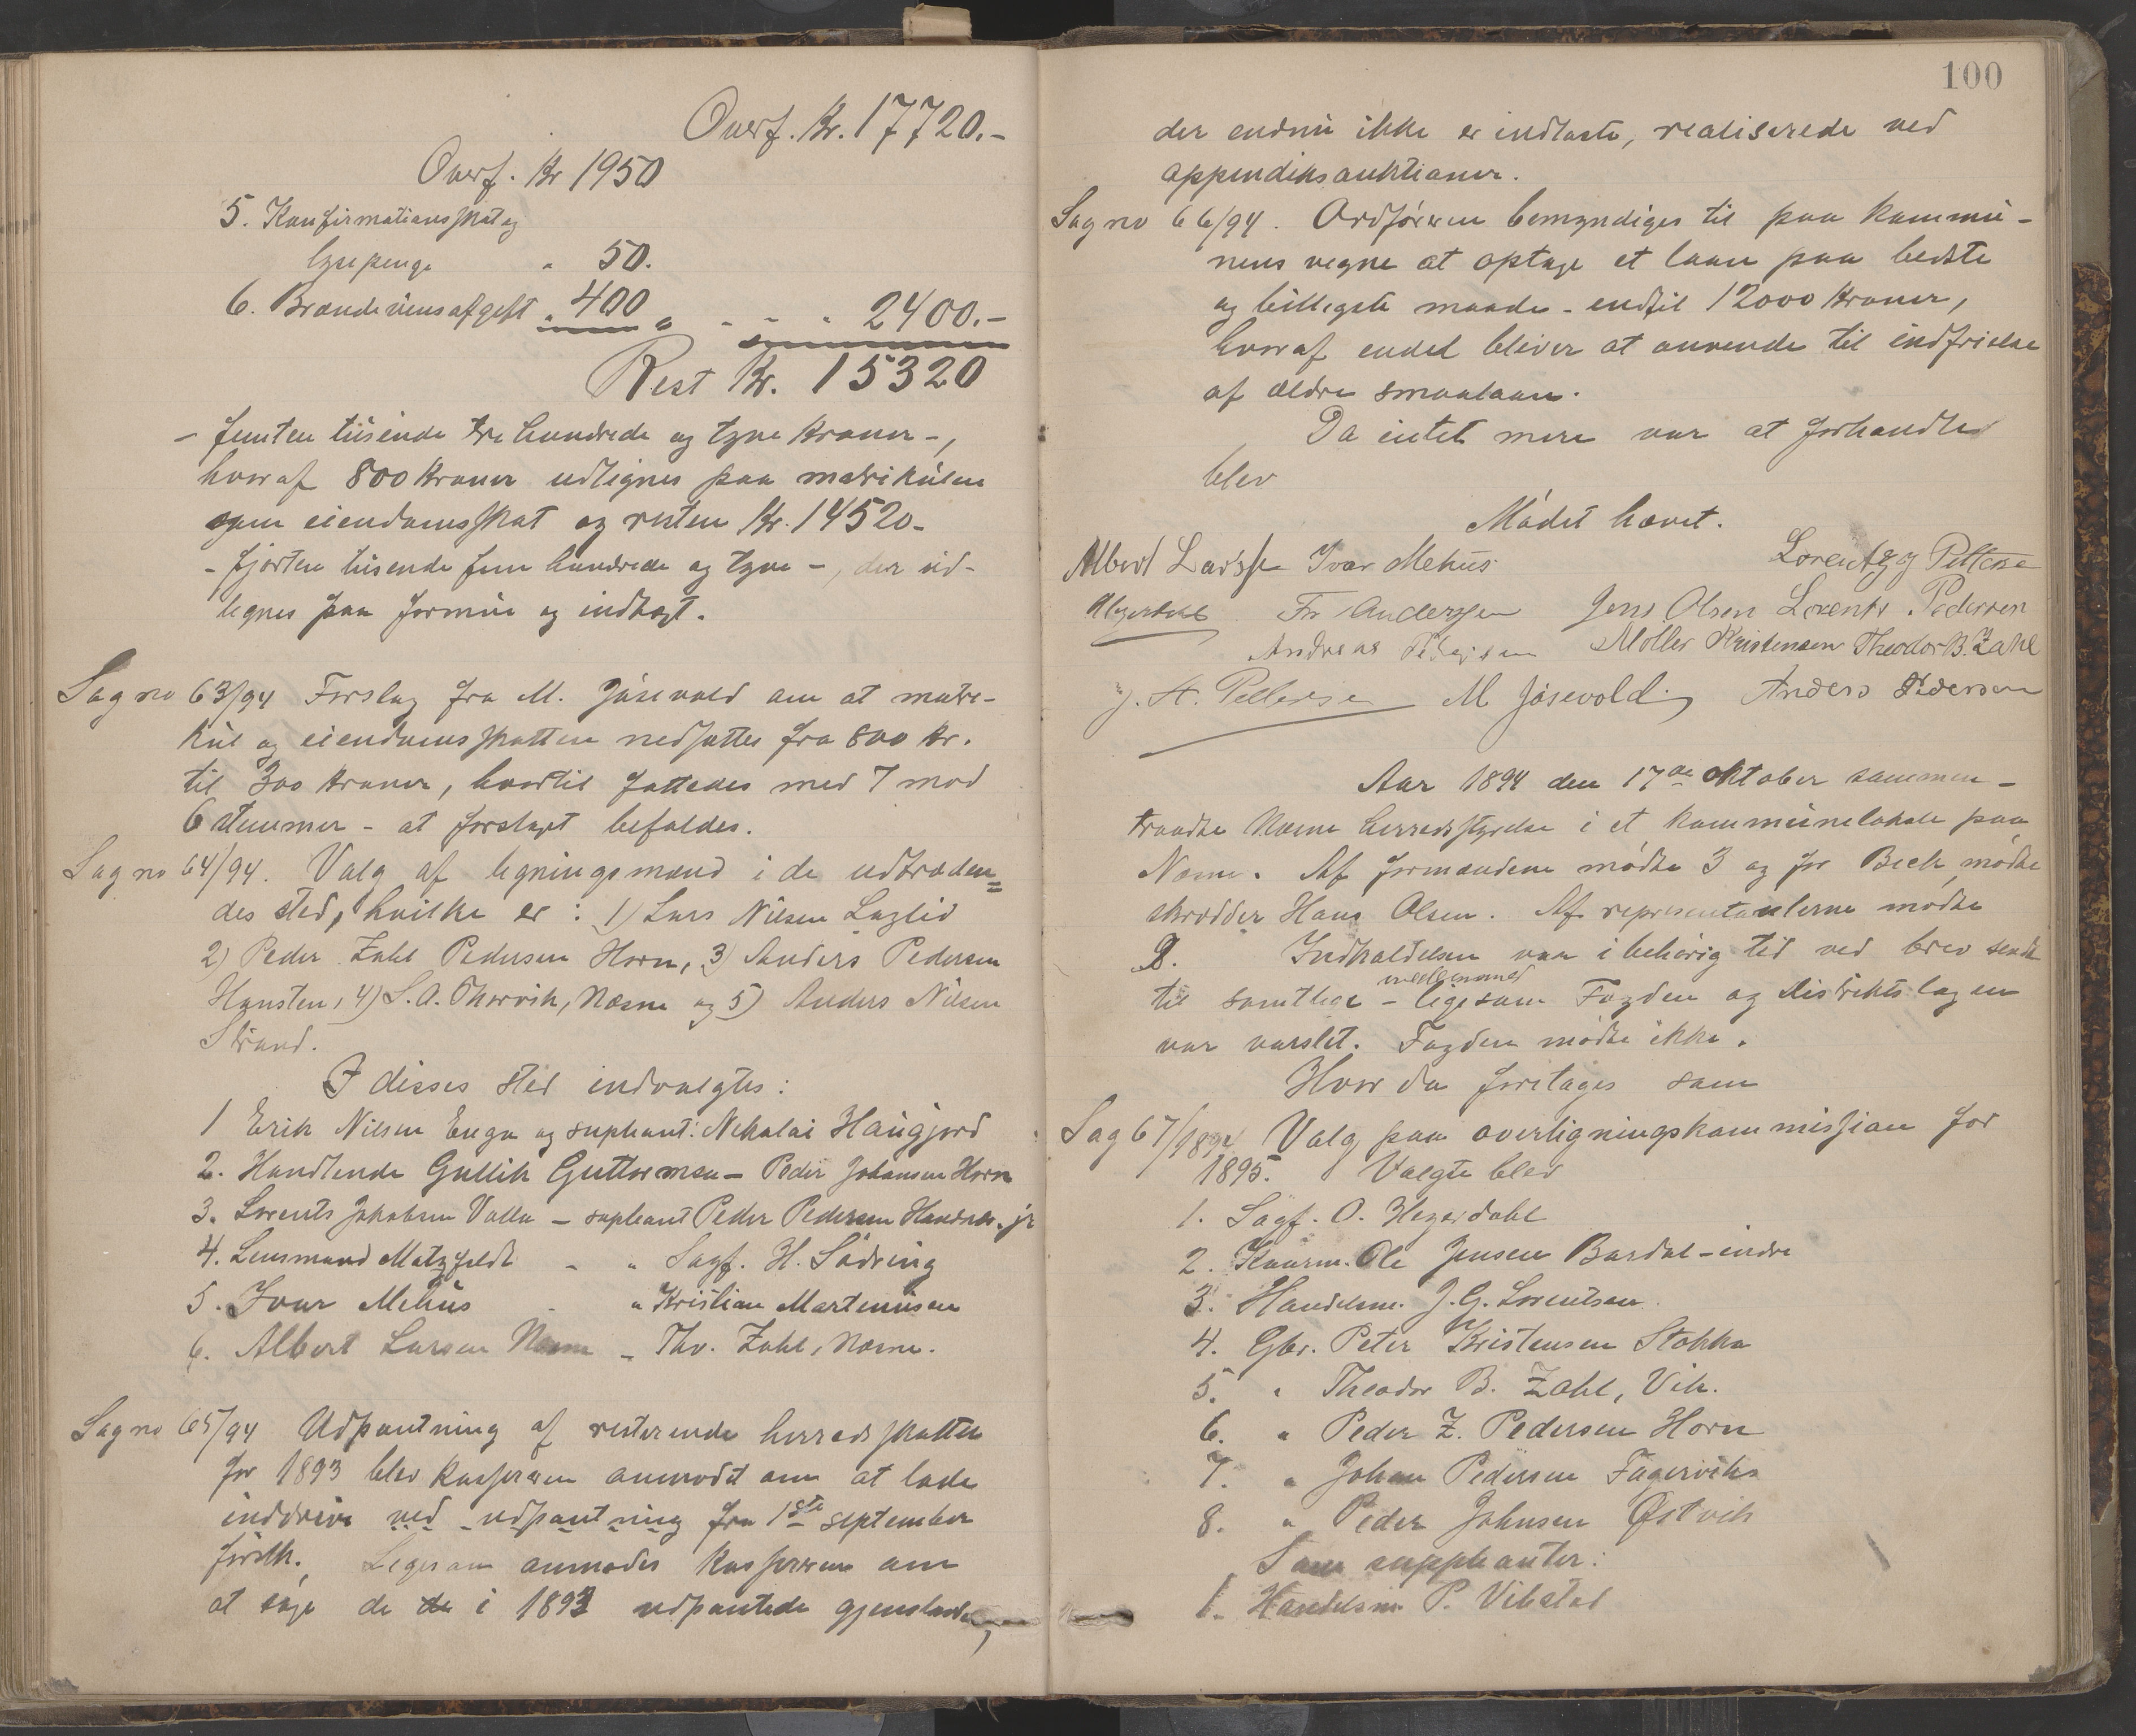 Overf. Kr. 17720.-
Overf. Kr 1950
5. Konfirmationsskat og
lysepenge " 50.
6. Brændevinsafgift " 400 " - - " 2400.-
Rest Kr. 15320
- femten tusende tre hundrede og tyve kroner -,
hvoraf 800 kroner udlignes paa matrikulen
som eiendomsskat og resten Kr. 14520-
- fjorten tusende fem hundrede og tyve -, der ud-
lignes paa formue og indtægt.
Sag no 63/94 Forslag fra M. Jøsevold om at matri-
kul og eiendomsskatten nedsættes fra 800 kr.
til 300 kroner, hvortil fattedes med 7 mod
6 stemmer - at forslaget befaldes.
Sag no 64/94. Valg af ligningsmænd i de udtræden=
des sted, hvilke er: 1) Lars Nilsen Laglid
2) Peder Zahl Pedersen Horn, 3) Anders Pedersen
Hunsten, 4) S. A. Thorvik, Næsne og 5) Anders Nilsen
Strand.
I disses sted indvalgtes:
1 Erik Nilsen Enga og supleant: Nikolai Haugjord
2. Handlende Gullik Guttormsen - Peder Johansen Horn
3. Lorents Jakobsen Valla - supleant Peder Pedersen Handnæs. jr
4. Lensmand Matzfeldt - " Sagf. H. Sødring
5. Ivar Mehus - " Kristian Marteniusen
6. Albert Larsen Næsne - Thv. Zahl, Næsne.
Sag no 65/94 Udpantning af resterende herredsskatter
for 1893 blev kassereren anmodet om at lade
inddrive ved udpantning fra 1ste september
førstk. Ligesom anmodes kassereren om
at søge de de i 1893 udpantede gjenstande,
100
der endnu ikke er indløste, realiserede ved
appendiksauktioner.
Sag no 66/94. Ordføreren bemyndiges til paa kommu-
nens vegne at optage et laan paa bedste
og billigste maade - endtil 12000 kroner,
hvoraf endel bliver at anvende til indfrielse
af ældre smaalaan.
Da intet mere var at forhandle
blev
Mødet hævet.
Albert Larsen Ivar Mehus Lorentz J Pettersen
Fr Anderssen Jens Olsen Lorents Pedersen
Andreas Pedersen Møller Kristensen Theodor B. Zahl
J. H. Pettersen M Jøsevold Anders Pedersen
Aar 1894 den 17de Oktober sammen-
traadte Næsne herredsstyrelse i et kommunelokale paa
Næsne. Af formændene mødte 3 og for Bech mødte
skrædder Hans Olsen. Af representanterne mødte
8. Indkaldelsen var i behørig tid ved brev sendt
medlemmer
til samtlige - ligesom Fogden og Distriktslægen
var varslet. Fogden mødte ikke.
Hvor da foretages som
Sag 67/1894 Valg paa overligningskommission for
1895. Valgte blev
1. Sagf. O. Hegerdahl
2. Kaarm. Ole Jensen Bardal-indre
3. Handelsm. J. G. Lorentsen
4. Gbr. Peter Kristensen Stokka
5. " Theodor B. Zahl, Vik.
6. " Peder Z. Pedersen Horn
7. " Johan Pedersen Fagervika
8. " Peder Johnsen Østvik
Som suppleanter:
1. Handelsm P. Vibstad